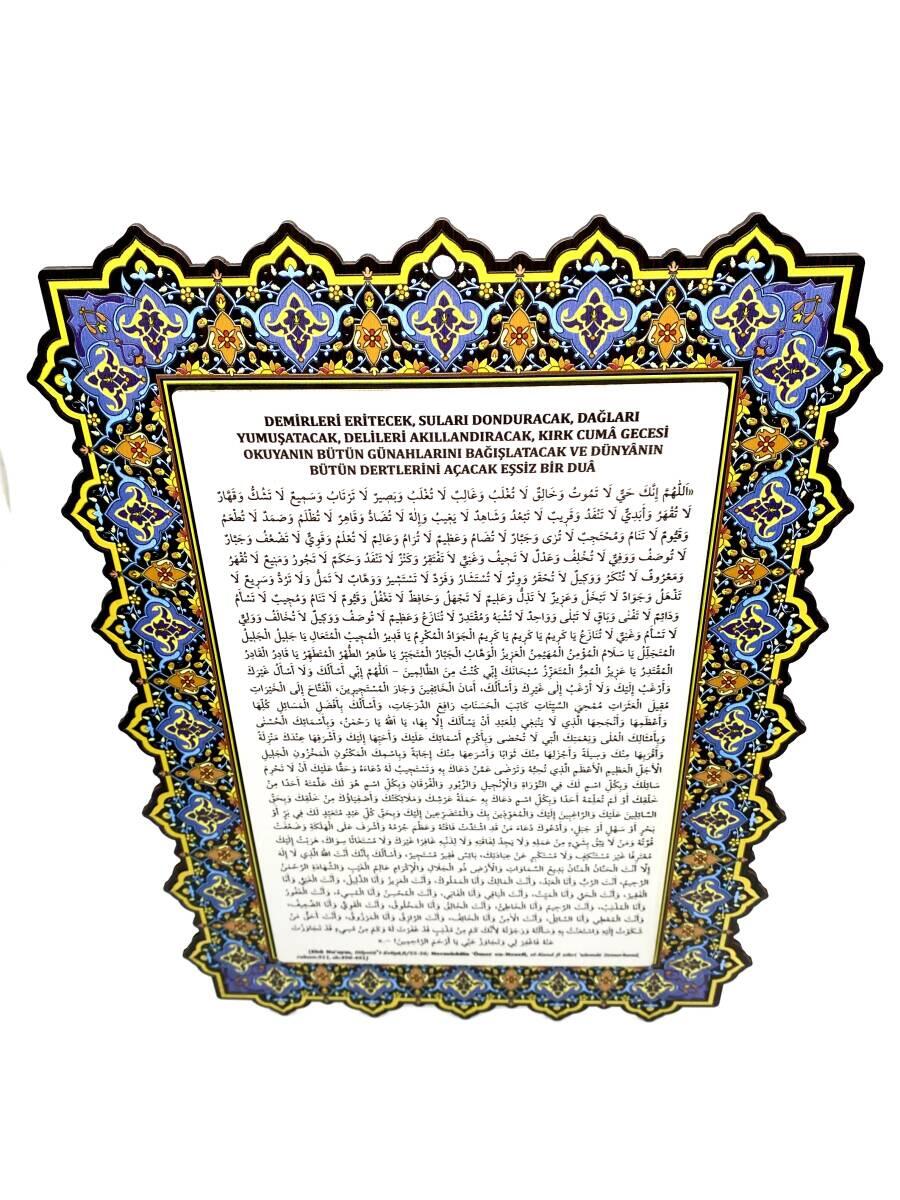 DEMİRLERİ ERİTECEK, SULARI DONDURACAK, DAĞLARI
YUMUŞATACAK, DELİLERİ AKILLANDIRACAK, KIRK CUMÂ GECESİ
OKUYANIN BÜTÜN GÜNAHLARINI BAĞIŞLATACAK VE DÜNYÂNIN
BÜTÜN DERTLERİNİ AÇACAK EŞSİZ BİR DUÂ
«اَللّٰهُمَّ إِنَّكَ حَيٌّ لَا تَمُوتُ وَخَالِقٌ لَا تُغْلَبُ وَغَالِبٌ لَا تُغْلَبُ وَبَصِيرٌ لَا تَرْتَابُ وَسَمِيعٌ لَا تَشُكُّ وَقَهَّارٌ
لَا تُقْهَرُ وَأَبَدِيٌّ لَا تَنْفَدُ وَقَرِيبٌ لَا تَبْعُدُ وَشَاهِدٌ لَا يَغِيبُ وَإِلٰهٌ لَا تُضَادُّ وَقَاهِرٌ لَا تُظْلَمُ وَصَمَدٌ لَا تُطْعَمُ
وَقَيُّومٌ لَا تَنَامُ وَمُحْتَجِبٌ لَا تُرٰى وَجَبَّارٌ لَا تُضَامُ وَعَظِيمٌ لَا تُرَامُ وَعَالِمٌ لَا تُعَلَّمُ وَقَوِيٌّ لَا تَضْعُفُ وَجَبَّارٌ
لَا تُوصَفُ وَوَفِيٌّ لَا تُخْلِفُ وَعَدْلٌ لَا تَحِيفُ وَغَنِيٌّ لَا تَفْتَقِرُ وَكَنْزٌ لَا تَنْفَدُ وَحَكَمٌ لَا تَجُورُ وَمَنِيعٌ لَا تُقْهَرُ
وَمَعْرُوفٌ لَا تُنْكَرُ وَوَكِيلٌ لَا تُحْقَرُ وَوِتْرٌ لَا تُسْتَشَارُ وَفَرْدٌ لَا تَسْتَشِيرُ وَوَهَّابٌ لَا تَمَلُّ وَلَا تَرُدُّ وَسَرِيعٌ لَا
تَذْهَلُ وَجَوَادٌ لَا تَبْخَلُ وَعَزِيزٌ لَا تَذِلُّ وَعَلِيمٌ لَا تَجْهَلُ وَحَافِظٌ لَا تَغْفُلُ وَقَيُّومٌ لَا تَنَامُ وَمُجِيبٌ لَا تَسْأَمُ
وَدَائِمٌ لَا تَفْنٰى وَبَاقٍ لَا تَبْلٰى وَوَاحِدٌ لَا تُشْبَهُ وَمُقْتَدِرٌ لَا تُنَازَعُ وَعَظِيمٌ لَا تُوصَفُ وَوَكِيلٌ لَا تُخَالَفُ وَوَلِيٌّ
لَا تَسْأَمُ وَغَنِيٌّ لَا تُنَازَعُ يَا كَرِيمُ يَا كَرِيمُ يَا كَرِيمُ الْجَوَادُ الْمُكْرِمُ يَا قَدِيرُ الْمُجِيبُ الْمُتَعَالِ يَا جَلِيلُ الْجَلِيلُ
الْمُتَجَلِّلُ يَا سَلَامُ الْمُؤْمِنُ الْمُهَيْمِنُ الْعَزِيزُ الْوَهَّابُ الْجَبَّارُ الْمُتَجَبِّرُ يَا طَاهِرُ الطُّهْرُ الْمُتَطَهِّرُ يَا قَادِرُ الْقَادِرُ
الْمُقْتَدِرُ يَا عَزِيزُ الْمُعِزُّ الْمُتَعَزِّزُ سُبْحَانَكَ إِنِّي كُنْتُ مِنَ الظَّالِمِينَ – اَللّٰهُمَّ إِنِّي أَسْأَلُكَ وَلَا أَسْأَلُ غَيْرَكَ
وَأَرْغَبُ إِلَيْكَ وَلَا أَرْغَبُ إِلٰى غَيْرِكَ وَأَسْأَلُكَ، أَمَانَ الْخَائِفِينَ وَجَارَ الْمُسْتَجِيرِينَ، الْفَتَّاحَ إِلَى الْخَيْرَاتِ
مُقِيلَ الْعَثَرَاتِ مُمْحِيَ السَّيِّئَاتِ كَاتِبَ الْحَسَنَاتِ رَافِعَ الدَّرَجَاتِ، وَأَسْأَلُكَ بِأَفْضَلِ الْمَسَائِلِ كُلِّهَا
وَأَعْظَمِهَا وَأَنْجَحِهَا الَّذِي لَا يَنْبَغِي لِلْعَبْدِ أَنْ يَسْأَلَكَ إِلَّا بِهَا، يَا اَللّٰهُ يَا رَحْمٰنُ، وَبِأَسْمَائِكَ الْحُسْنٰى
وَبِأَمْثَالِكَ الْعُلٰى وَبِنِعْمَتِكَ الَّتِي لَا تُحْصٰى وَبِأَكْرَمِ أَسْمَائِكَ عَلَيْكَ وَأَحَبِّهَا إِلَيْكَ وَأَشْرَفِهَا عِنْدَكَ مَنْزِلَةً
وَأَقْرَبِهَا مِنْكَ وَسِيلَةً وَأَجْزَلِهَا مِنْكَ ثَوَابًا وَأَسْرَعِهَا مِنْكَ إِجَابَةً وَبِاسْمِكَ الْمَكْنُونِ الْمَخْزُونِ الْجَلِيلِ
الْأَجَلِّ الْعَظِيمِ الْأَعْظَمِ الَّذِي تُحِبُّهُ وَتَرْضٰى عَمَّنْ دَعَاكَ بِهِ وَتَسْتَجِيبُ لَهُ دُعَاءَهُ وَحَقًّا عَلَيْكَ أَنْ لَا تَحْرِمَ
سَائِلَكَ وَبِكُلِّ اسْمٍ لَكَ فِي التَّوْرَاةِ وَالْإِنْجِيلِ وَالزَّبُورِ وَالْفُرْقَانِ وَبِكُلِّ اسْمٍ هُوَ لَكَ عَلَّمْتَهُ أَحَدًا مِنْ
خَلْقِكَ أَوْ لَمْ تُعَلِّمْهُ أَحَدًا وَبِكُلِّ اسْمٍ دَعَاكَ بِهِ حَمَلَةُ عَرْشِكَ وَمَلَائِكَتُكَ وَأَصْفِيَاؤُكَ مِنْ خَلْقِكَ وَبِحَقِّ
السَّائِلِينَ عَلَيْكَ وَالرَّاغِبِينَ إِلَيْكَ وَالْمُعَوِّذِينَ بِكَ وَالْمُتَضَرِّعِينَ إِلَيْكَ وَبِحَقِّ كُلِّ عَبْدٍ مُتَعَبِّدٍ لَكَ فِي بَرٍّ أَوْ
بَحْرٍ أَوْ سَهْلٍ أَوْ جَبَلٍ، وَأَدْعُوكَ دُعَاءَ مَنْ قَدِ اشْتَدَّتْ فَاقَتُهُ وَعَظُمَ جُرْمُهُ وَأَشْرَفَ عَلَى الْهَلَكَةِ وَضَعُفَتْ
قُوَّتُهُ وَمَنْ لَا يَثِقُ بِشَيْءٍ مِنْ عَمَلِهِ وَلَا يَجِدُ لِفَاقَتِهِ وَلَا لِذَنْبِهِ غَافِرًا غَيْرَكَ وَلَا مُسْتَغَاثًا سِوَاكَ هَرَبْتُ إِلَيْكَ
مُعْتَرِفًا غَيْرَ مُسْتَنْكِفٍ وَلَا مُسْتَكْبِرٍ عَنْ عِبَادَتِكَ، بَائِسٌ فَقِيرٌ مُسْتَجِيرٌ، وَأَسْأَلُكَ بِأَنَّكَ أَنْتَ اللهُ الَّذِي لَا إِلٰهَ
إِلَّا أَنْتَ الْحَنَّانُ الْمَنَّانُ بَدِيعُ السَّمَاوَاتِ وَالْأَرْضِ ذُو الْجَلَالِ وَالْإِكْرَامِ عَالِمُ الْغَيْبِ وَالشَّهَادَةِ الرَّحْمٰنُ
الرَّحِيمُ، أَنْتَ الرَّبُّ وَأَنَا الْعَبْدُ، وَأَنْتَ الْمَالِكُ وَأَنَا الْمَمْلُوكُ، وَأَنْتَ الْعَزِيزُ وَأَنَا الذَّلِيلُ، وَأَنْتَ الْغَنِيُّ وَأَنَا
الْفَقِيرُ، وَأَنْتَ الْحَيُّ وَأَنَا الْمَيِّتُ، وَأَنْتَ الْبَاقِي وَأَنَا الْفَانِي، وَأَنْتَ الْمُحْسِنُ وَأَنَا الْمُسِيءُ، وَأَنْتَ الْغَفُورُ
وَأَنَا الْمُذْنِبُ، وَأَنْتَ الرَّحِيمُ وَأَنَا الْخَاطِئُ، وَأَنْتَ الْخَالِقُ وَأَنَا الْمَخْلُوقُ، وَأَنْتَ الْقَوِيُّ وَأَنَا الضَّعِيفُ،
وَأَنْتَ الْمُعْطِي وَأَنَا السَّائِلُ، وَأَنْتَ الْأَمِنُ وَأَنَا الْخَائِفُ، وَأَنْتَ الرَّازِقُ وَأَنَا الْمَرْزُوقُ، وَأَنْتَ أَحَقُّ مَنْ
شَكَوْتُ إِلَيْهِ وَاسْتَغَثْتُ بِهِ وَسَأَلْتُهُ وَرَجَوْتُهُ لِأَنَّكَ كَمْ مِنْ مُذْنِبٍ قَدْ غَفَرْتَ لَهُ وَكَمْ مِنْ مُسِيءٍ قَدْ تَجَاوَزْتَ
عَنْهُ فَاغْفِرْ لِي وَتَجَاوَزْ عَنِّي يَا أَرْحَمَ الرَّاحِمِينَ! –.»
(Ebû Nu'aym, Hilyetü'l-Evliyâ,